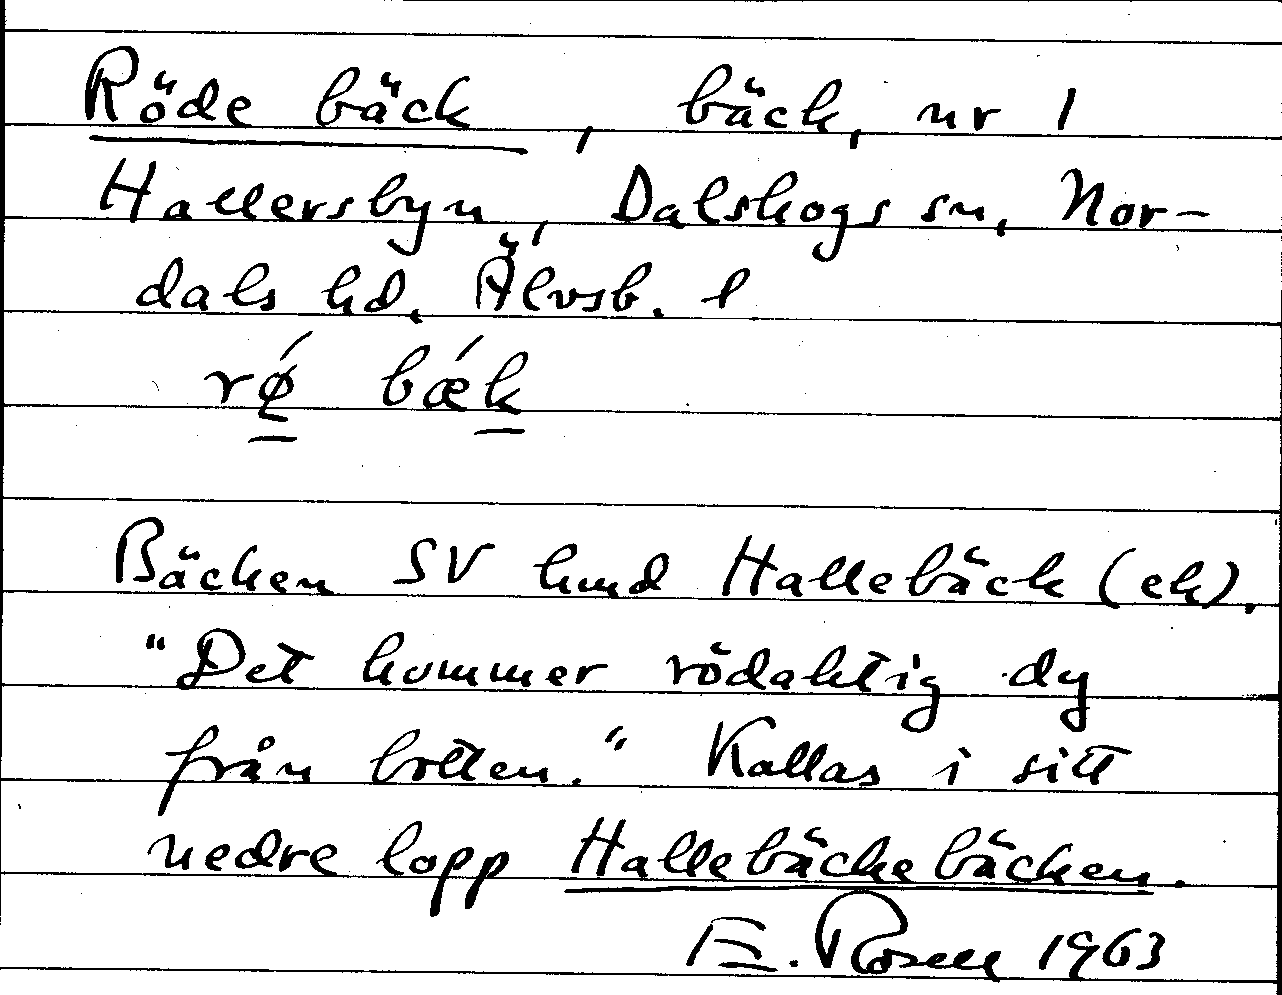 Röde bäck, bäck, nr 1
Hallersbyn, Dalskogs sn, Nor-
dals hd. Älvsb. l
rǿ bǽk
Bäcken SV kund Hallebäck (ek).
"Det kommer rödaktig dy
från botten." Kallas i sitt
nedre lopp Hallebäckebäcken.
E. Rosell 1963